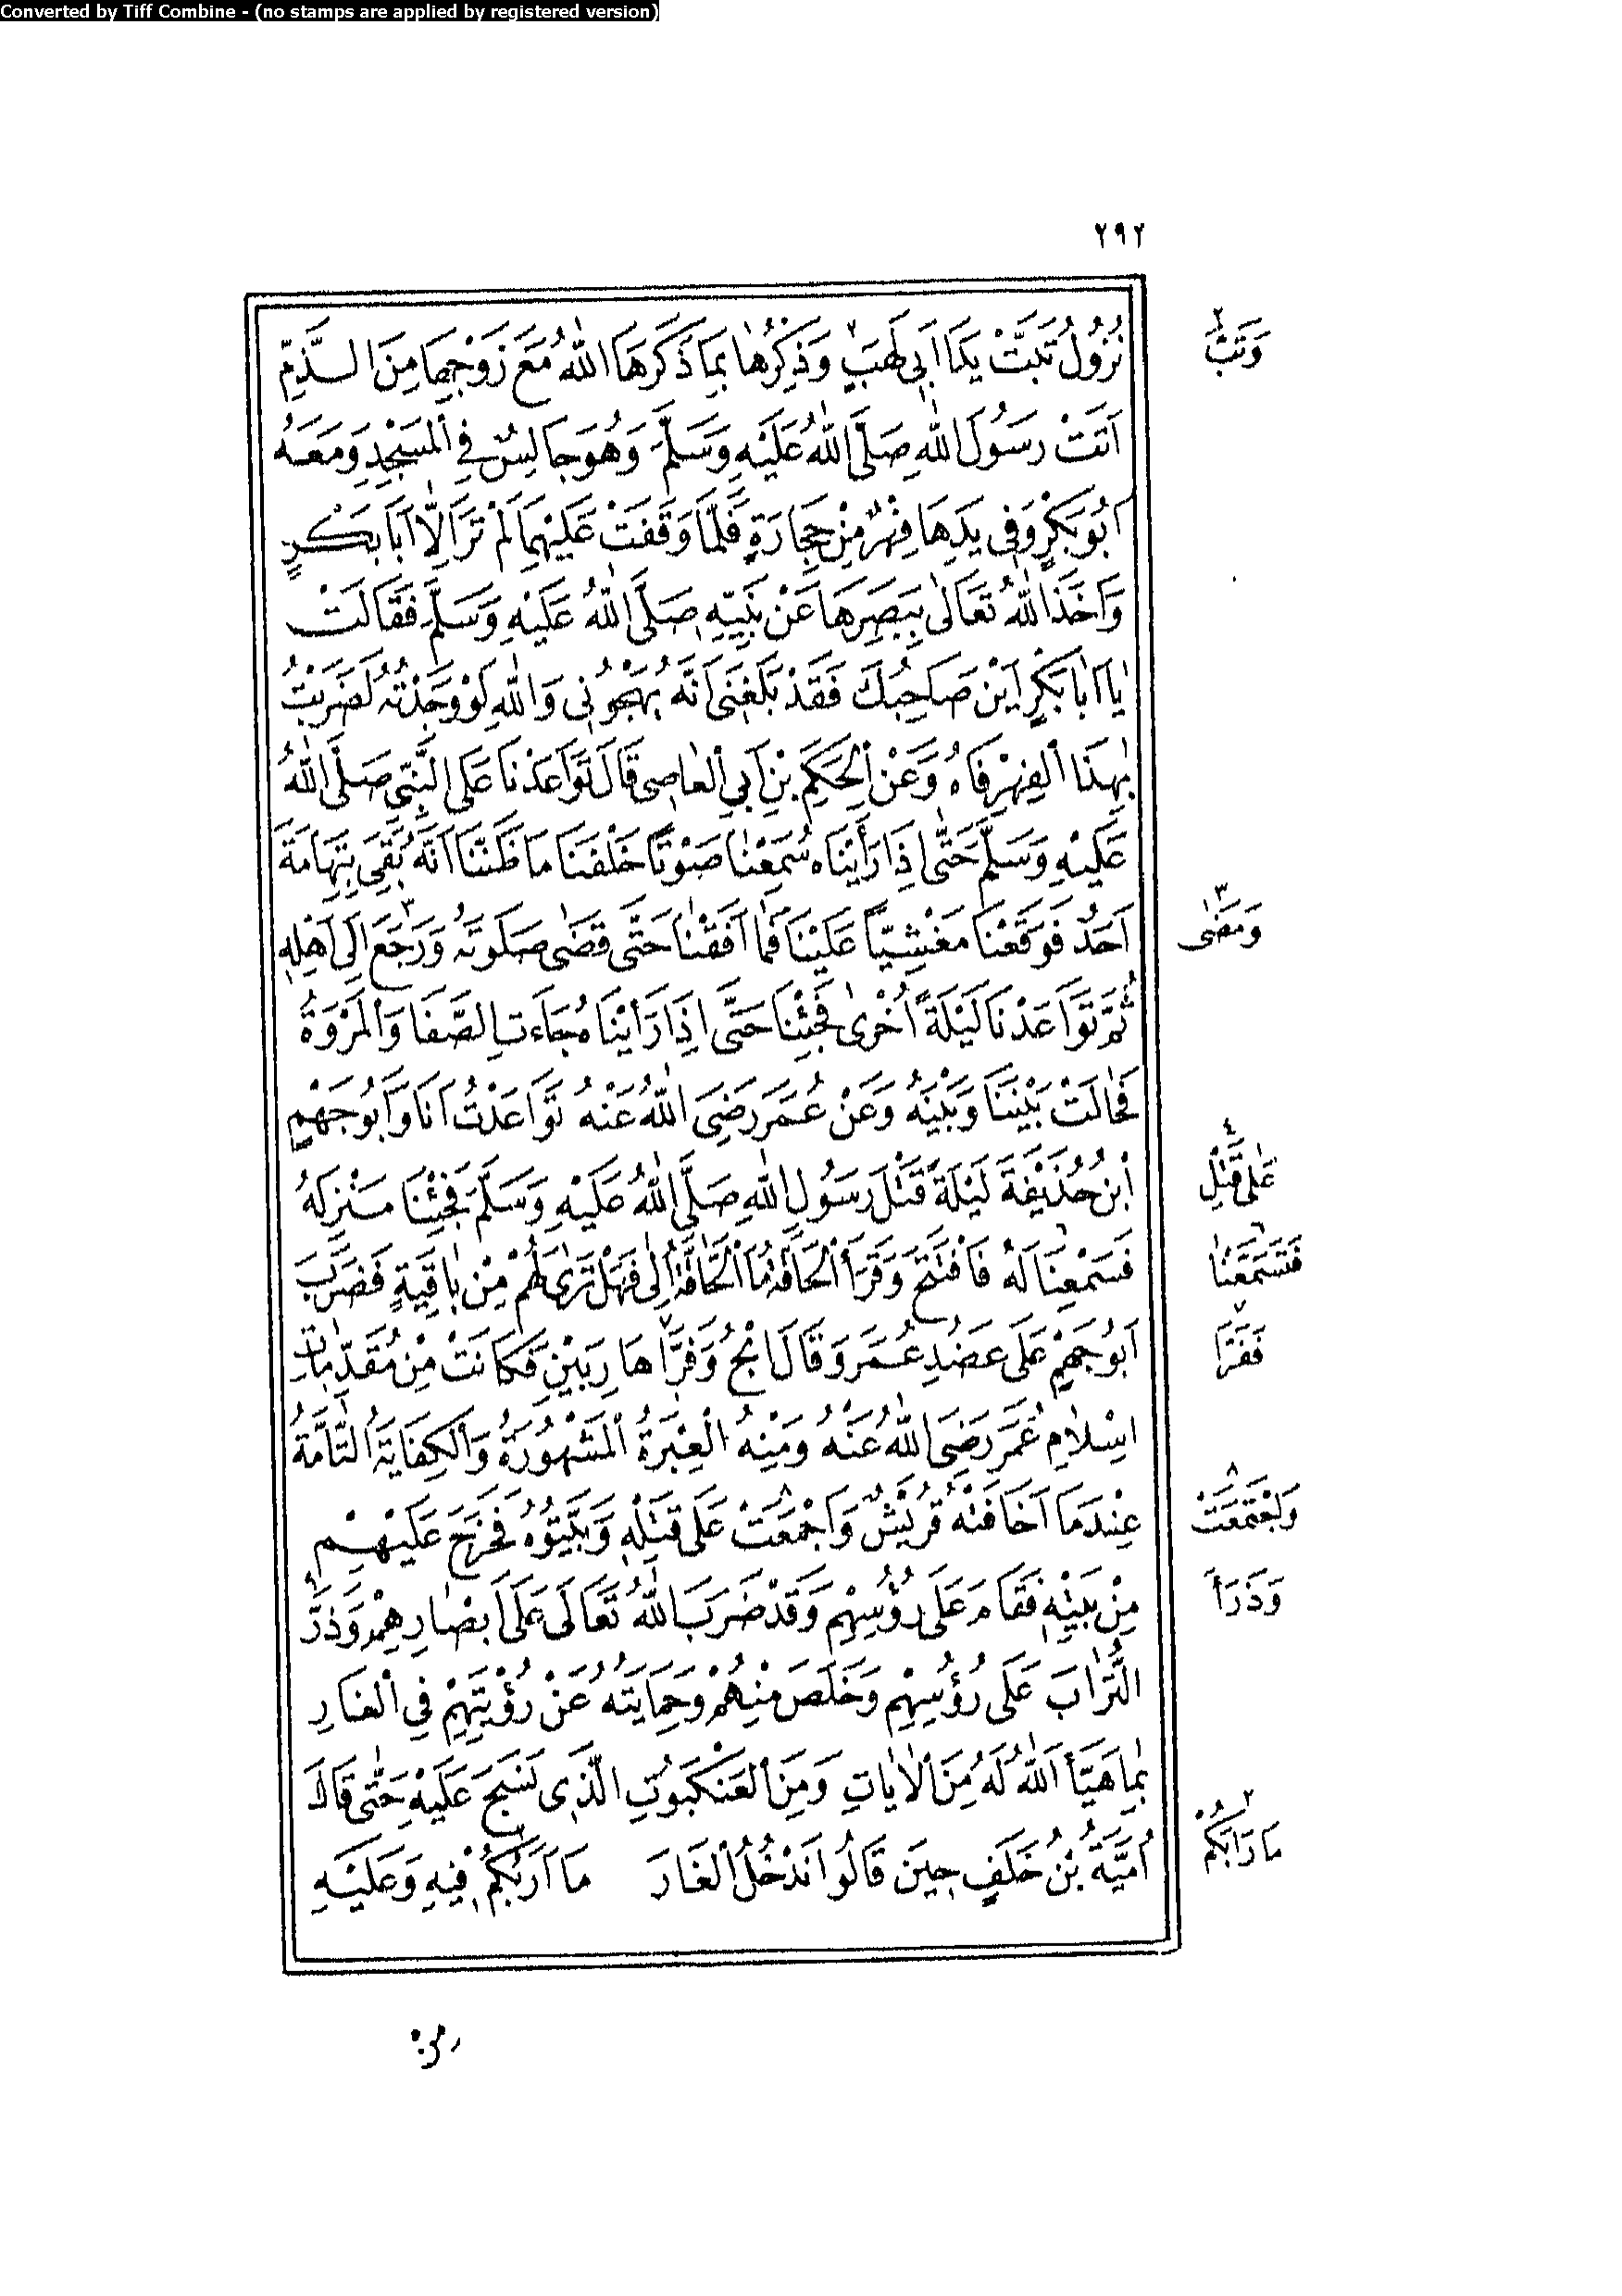 Converted by Tiff Combine - (no stamps are applied by registered version)
٢٩٢
نُزُولُ تَبَّتْ يَدَا اَبِى لَهَبٍ٢ وَذِكْرُهَا بِمَا ذَكَرَهَا اللهُ مَعَ زَوْجِهَا مِنَ الذَّمِّ
وَتَبَّ٢
اَتَتْ رَسُولَ اللهِ صَلَّى اللهُ عَلَيْهِ وَسَلَّمَ وَهُوَ جَالِسٌ فِى الْمَسْجِدِ وَمَعَهُ
اَبُو بَكْرٍ وَفِى يَدِهَا فِهْرٌ مِنْ حِجَارَةٍ فَلَمَّا وَقَفَتْ عَلَيْهِمَا لَمْ تَرَ اِلَّا اَبَا بَكْرٍ
وَاَخَذَ اللهُ تَعَالٰى بِبَصَرِهَا عَنْ نَبِيِّهِ صَلَّى اللهُ عَلَيْهِ وَسَلَّمَ فَقَالَتْ
يَا اَبَا بَكْرٍ اَيْنَ صَاحِبُكَ فَقَدْ بَلَغَنِى اَنَّهُ يَهْجُونِى وَاللهِ لَوْ وَجَدْتُهُ لَضَرَبْتُ
بِهٰذَا الْفِهْرِ فَاهُ وَعَنِ الْحَكَمِ بْنِ اَبِى الْعَاصِى قَالَ تَوَاعَدْنَا عَلَى النَّبِىِّ صَلَّى اللهُ
عَلَيْهِ وَسَلَّمَ حَتّٰى اِذَا رَأَيْنَاهُ سَمِعْنَا صَوْتًا خَلْفَنَا مَا ظَنَنَّا اَنَّهُ بَقِىَ بِتِهَامَةَ
اَحَدٌ فَوَقَعْنَا مَغْشِيًّا عَلَيْنَا فَمَا اَفَقْنَا حَتّٰى قَضٰى صَلٰوتَهُ وَرَجَعَ٣ اِلٰى اَهْلِهِ
وَمَضٰى٣
ثُمَّ تَوَاعَدْنَا لَيْلَةً اُخْرٰى فَجِئْنَا حَتّٰى اِذَا رَاَيْنَاهُ جَاءَتِ الصَّفَا وَالْمَرْوَةُ
فَحَالَتْ بَيْنَنَا وَبَيْنَهُ وَعَنْ عُمَرَ رَضِىَ اللهُ عَنْهُ تَوَاعَدْتُ اَنَا وَاَبُو جَهْمِ
اِبْنُ حُذَيْفَةَ لَيْلَةً قَتْلَ رَسُولِ اللهِ صَلَّى اللهُ عَلَيْهِ وَسَلَّمَ فَجِئْنَا مَنْزِلَهُ
عَلٰى قَتْلِ٤
فَسَمِعْنَا٦ لَهُ فَافْتَتَحَ وَقَرَأَ الْحَاقَّةُ مَا الْحَاقَّةُ اِلٰى فَهَلْ تَرٰى لَهُمْ مِنْ بَاقِيَةٍ فَضَرَبَ
فَتَسَمَّعْنَا٦
اَبُو جَهْمٍ عَلٰى عَضُدِ عُمَرَ وَقَالَ انْجُ وَفَرَّا٧ هَارِبَيْنِ فَكَانَتْ مِنْ مُقَدِّمَاتِ
فَفَرَّا٧
اِسْلَامِ عُمَرَ رَضِىَ اللهُ عَنْهُ وَمِنْهُ الْعِبْرَةُ الْمَشْهُورَةُ وَالْكِفَايَةُ التَّامَّةُ
عِنْدَمَا اَخَافَتْهُ قُرَيْشٌ وَاَجْمَعَتْ٨ عَلٰى قَتْلِهِ وَبَيَّتُوهُ فَخَرَجَ عَلَيْهِمْ
وَاجْتَمَعَتْ٨
مِنْ بَيْتِهِ فَقَامَ عَلٰى رُؤُسِهِمْ وَقَدْ ضَرَبَ اللهُ تَعَالٰى عَلٰى اَبْصَارِهِمْ وَذَرَّ٩
وَذَرَأَ
التُّرَابَ عَلٰى رُؤُسِهِمْ وَخَلَصَ مِنْهُمْ وَحِمَايَتُهُ عَنْ رُؤْيَتِهِمْ فِى الْغَارِ
بِمَا هَيَّأَ اللهُ لَهُ مِنَ الْاٰيَاتِ وَمِنَ الْعَنْكَبُوتِ الَّذِى نَسَجَ عَلَيْهِ حَتّٰى قَالَ
اُمَيَّةُ بْنُ خَلَفٍ حِينَ قَالُوا نَدْخُلُ الْغَارَ مَا اَرَبُكُمْ٢ فِيهِ وَعَلَيْهِ
مَا رَابَكُمْ٢